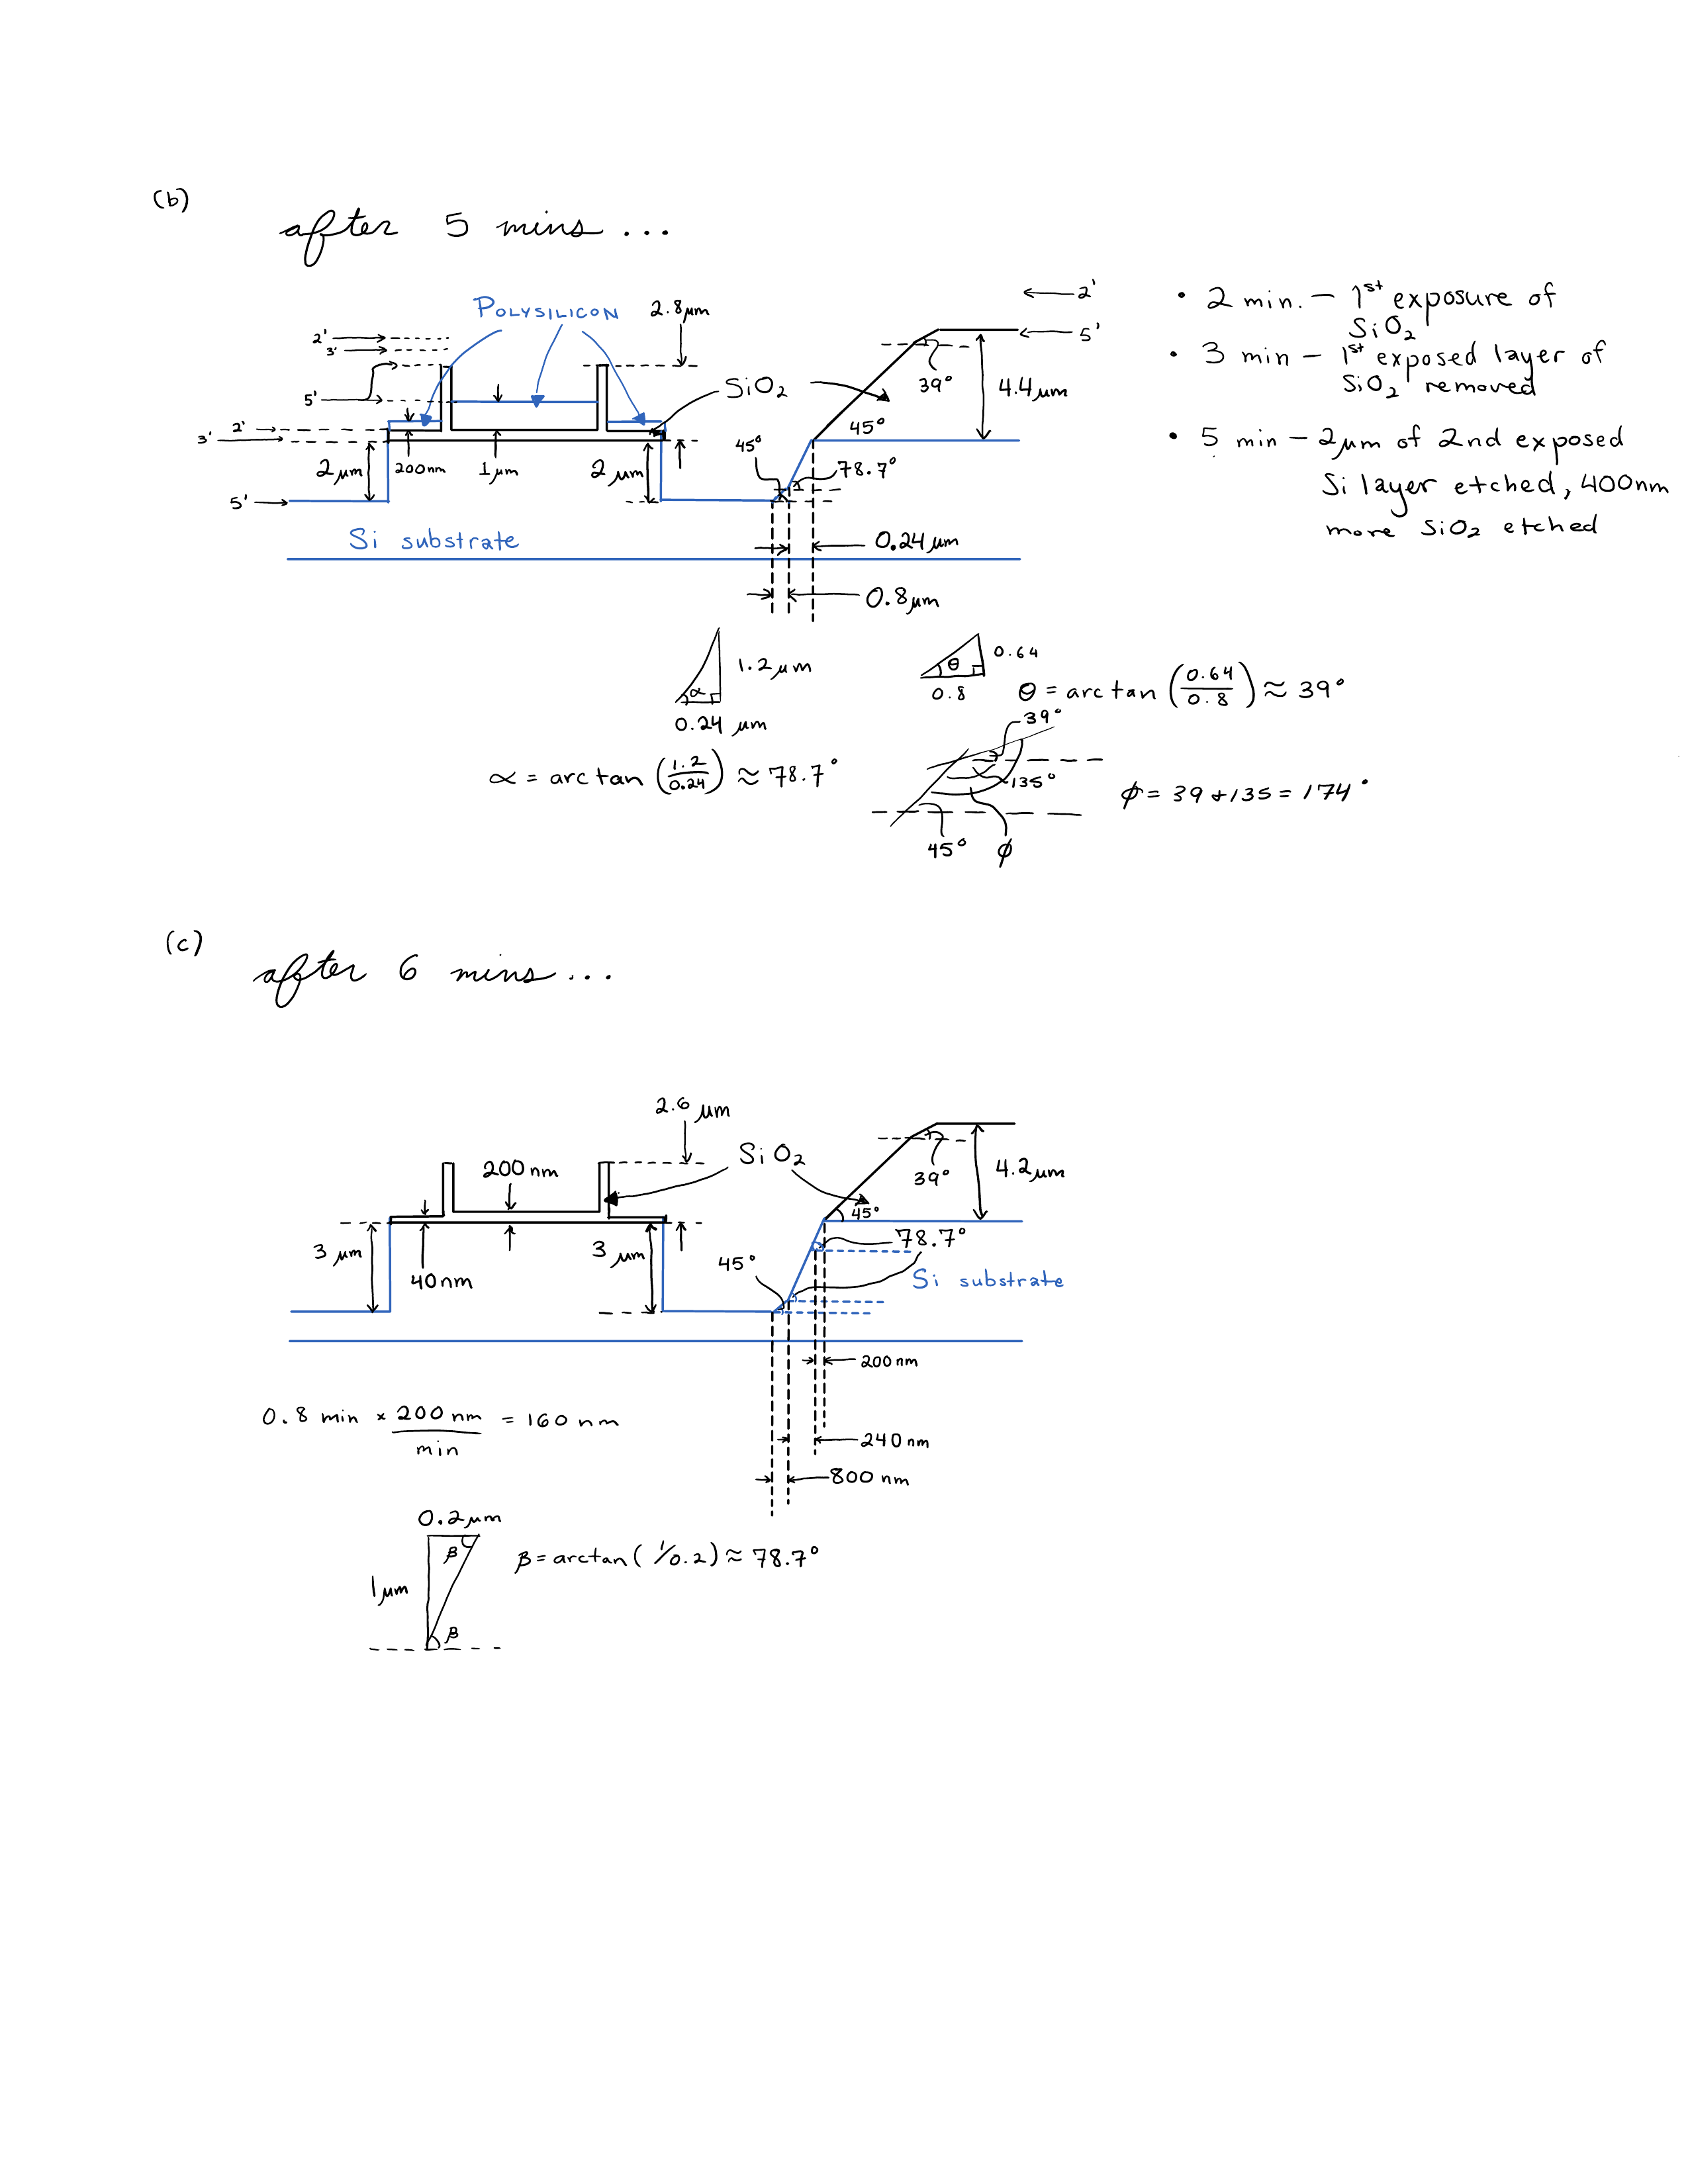 (b)
after 5 mins...
POLYSILICON
2.8μm
2'
3'
5'
2'
3'
5'
2μm
200nm
1μm
2μm
SiO2
45°
Si substrate
2'
5'
39°
4.4μm
45°
78.7°
0.24μm
0.8μm
• 2 min. – 1st exposure of
SiO2
• 3 min – 1st exposed layer of
SiO2 removed
• 5 min – 2μm of 2nd exposed
Si layer etched, 400nm
more SiO2 etched
1.2μm
α
0.24 μm
α = arctan (1.2/0.24) ≈ 78.7°
θ
0.64
0.8
θ = arctan (0.64/0.8) ≈ 39°
39°
135°
45°
φ
φ = 39+135 = 174°
(c)
after 6 mins...
2.6 μm
200nm
SiO2
39°
4.2μm
45°
3 μm
40nm
3 μm
45°
78.7°
Si substrate
200nm
240nm
800 nm
0.8 min × 200 nm/min = 160 nm
0.2μm
β
1μm
β
β = arctan(1/0.2) ≈ 78.7°